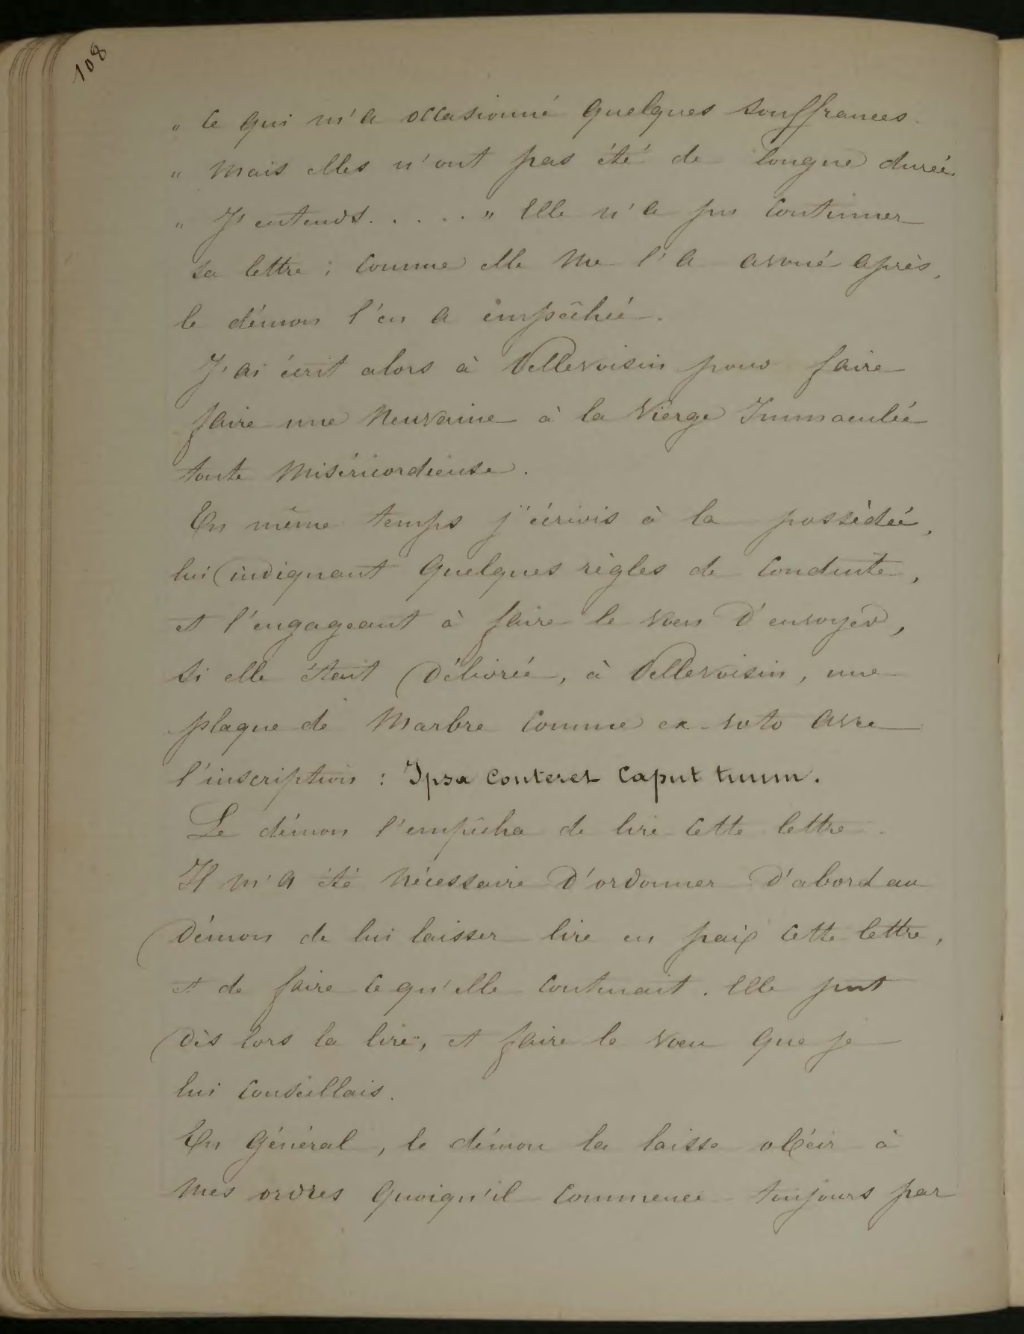 108
„ Ce qui m'a occasionné quelques souffrances.
„ Mais elles n'ont pas été de longue durée
„ J'entends..... » Elle n'a pu continuer
sa lettre ; comme elle me l'a avoué après,
le démon l'en a empêchée.
J'ai écrit alors à Pellevoisin pour faire
faire une neuvaine à la Vierge Immaculée
toute Miséricordieuse.
En même temps j'écrivis à la possédée,
lui indiquant quelques règles de conduite,
et l'engageant à faire le vœu d'envoyer,
si elle était délivrée, à Pellevoisin, une
plaque de Marbre comme ex-voto avec
l'inscription : Ipsa conteret Caput tuum.
Le démon l'empêcha de lire cette lettre.
Il m'a été nécessaire d'ordonner d'abord au
démon de lui laisser lire en paix cette lettre,
et de faire ce qu'elle contenait. Elle put
dès lors la lire, et faire le vœu que je
lui conseillais.
En général, le démon la laisse obéir à
mes ordres quoiqu'il commence toujours par